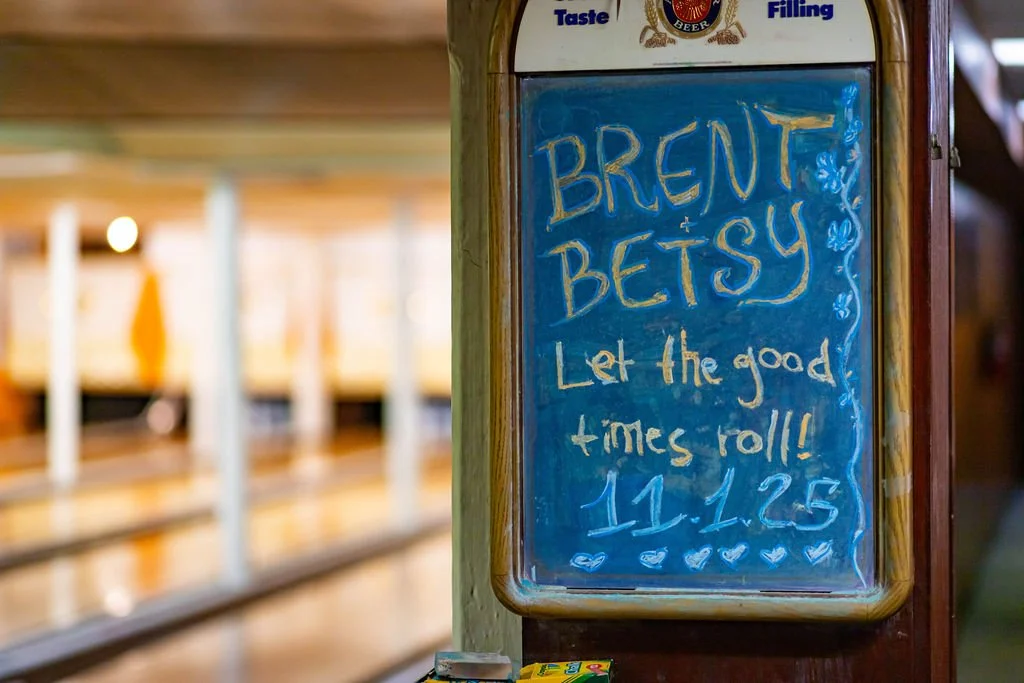 Taste Filling
BEER
BRENT
+
BETSY
Let the good
times roll!
11.1.25